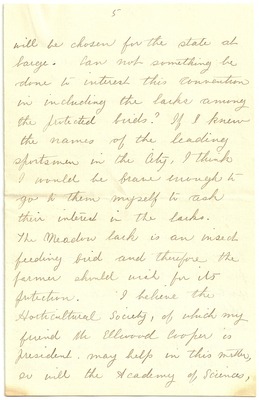 5
will be chosen for the state at
large. Can not something be
done to interest this Convention
in including the larks among
the protected birds? If I knew
the names of the leading
sportsmen in the City, I think
I would be brave enough to
go to them myself to ask
their interest in the larks.
The Meadow lark is an insect
feeding bird and therefore the
farmer should wish for its
protection. I believe the
Horticultural Society, of which my
friend Mr Ellwood Cooper is
president. may help in this matter,
so will the Academy of Sciences,